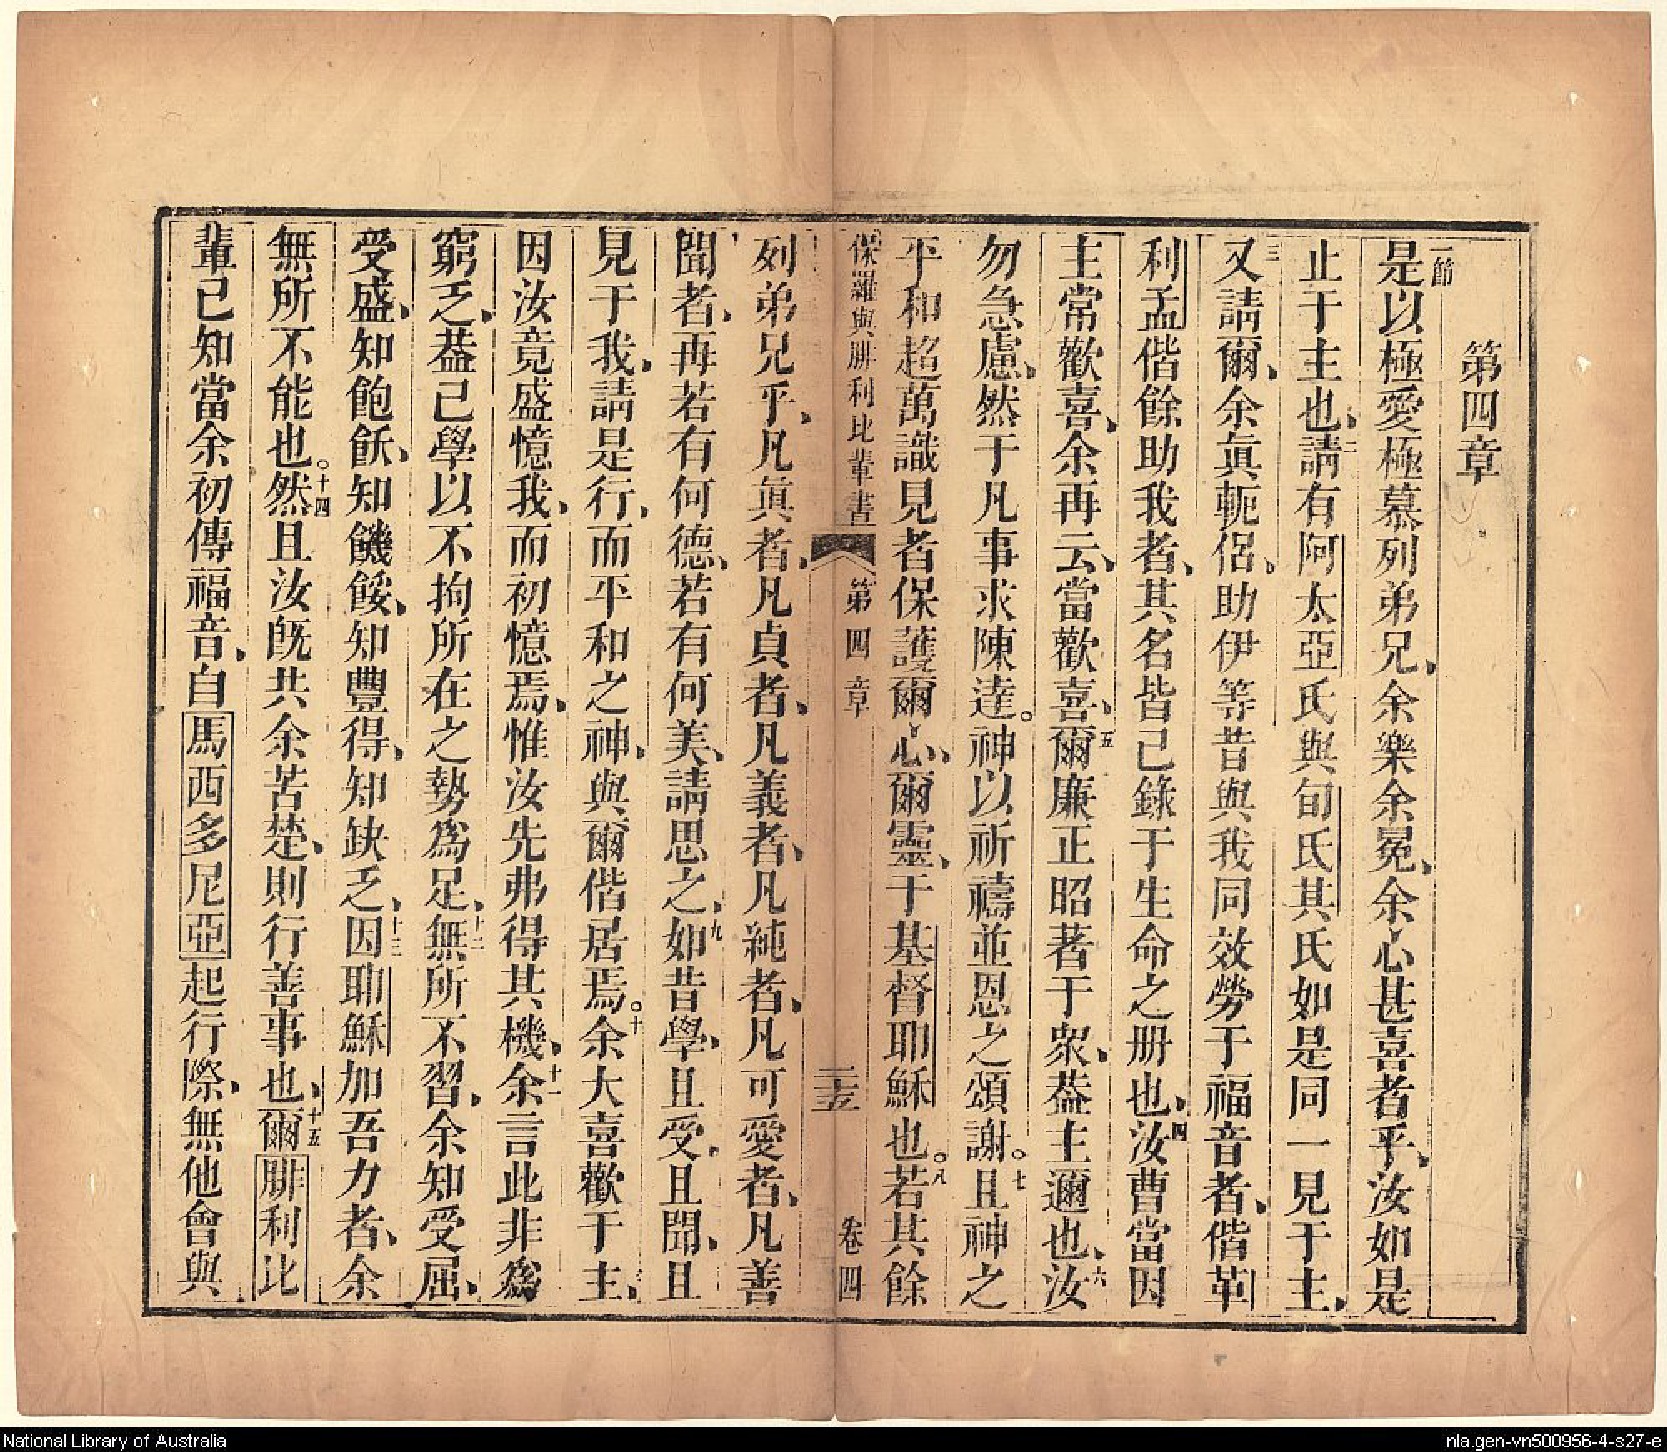 第四章
一節
是以極愛極慕列弟兄、余樂余冕、余心甚喜者乎、汝如是
止于主也、二請有阿太亞氏與旬氏其氏如是同一見于主、
三又請爾、余眞軛侶、助伊等昔與我同效勞于福音者、偕革
利孟偕餘助我者、其名皆己錄于生命之册也、四汝曹當因
主常歡喜、余再云、當歡喜、五爾廉正昭著于衆、葢主邇也、六汝
勿急慮、然于凡事求陳達。神以祈禱並恩之頌謝。七且神之
平和超萬識見者保護爾心、爾靈、于基督耶穌也。八若其餘
保羅與腓利比輩書 第四章 二十五 卷四
列弟兄乎、凡眞者、凡貞者、凡義者、凡純者、凡可愛者、凡善
聞者、再若有何德、若有何美、請思之、九如昔學、且受、且聞、且
見于我、請是行、而平和之神、與爾偕居焉。十余大喜歡于主、
因汝竟盛憶我、而初憶焉、惟汝先弗得其機、十一余言此非爲
窮乏、葢己學以不拘所在之勢爲足、十二無所不習、余知受屈、
受盛、知飽飫、知饑餒、知豐得、知缺乏、十三因耶穌加吾力者、余
無所不能也。十四然且汝旣共余苦楚、則行善事也、十五爾腓利比
輩已知當余初傳福音、自馬西多尼亞起行際、無他會與
National Library of Australia
nla.gen-vn500956-4-s27-e